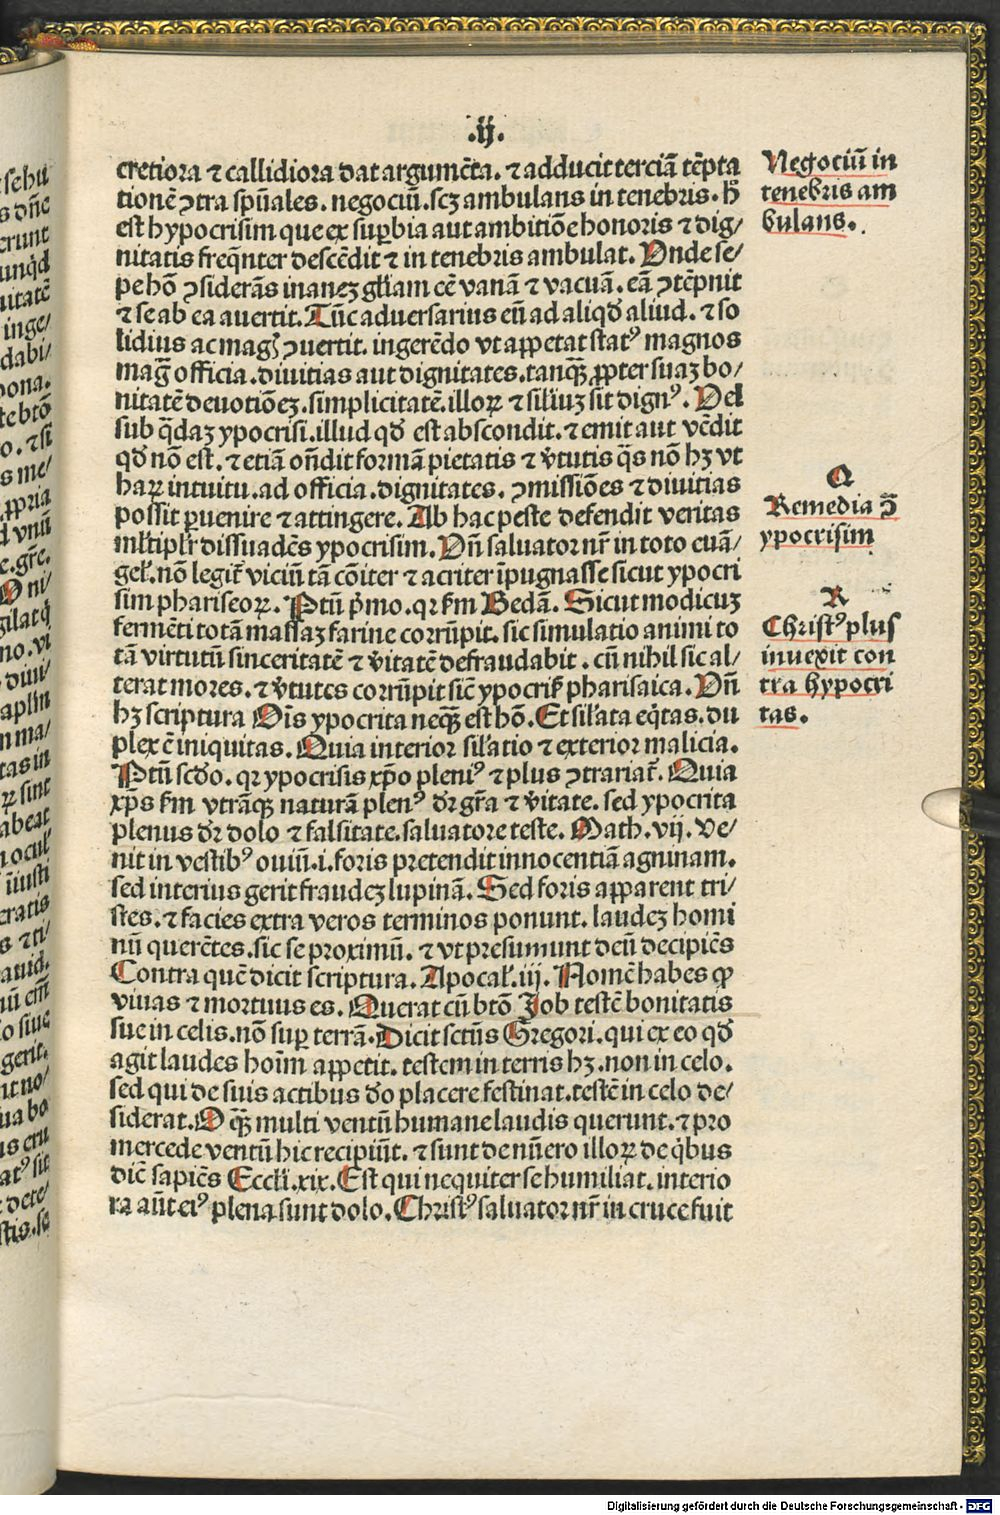 .ij.
cretiora ⁊ callidiora dat argumēta. ⁊ adducit terciā tēpta
tionē ꝯtra spūales. negociū. scꝫ ambulans in tenebris. h̄
est hypocrisim que ex suꝑbia aut ambitiōe honoris ⁊ dig/
nitatis freq̄nter descēdit ⁊ in tenebris ambulat. Vnde se/
pe hō ꝯsiderās inanez gl̄iam eē vanā ⁊ vacuā. eā ꝯtēpnit
⁊ se ab ea auertit. Tūc aduersarius eū ad aliqd̄ aliud. ⁊ so
lidius ac magꝭ ꝯuertit. ingerēdo vt aꝑpetat statꝰ magnos
mag̅ officia. diuitias aut dignitates. tanqꝫ ꝓpter suaꝫ bo/
nitatē deuotiōeꝫ. simplicitatē. illoꝝ ⁊ sil̄iuꝫ sit dignꝰ. Uel
sub q̄daꝫ ypocrisi. illud qd̄ est abscondit. ⁊ emit aut vēdit
qd̄ nō est. ⁊ etiā on̄dit formā pietatis ⁊ v̄tutis q̄s nō hꝫ vt
haꝝ intuitu. ad officia. dignitates. ꝯmissiōes ⁊ diuitias
possit ꝑuenire ⁊ attingere. Ab hac peste defendit veritas
ml̄tipl̄r dissuadēs ypocrisim. Vn̄ saluator nr̄ in toto euā/
gel̄. nō legit̄ viciū tā cōiter ⁊ acriter īpugnasse sicut ypocri
sim phariseoꝝ. Ptū p̄mo. qꝛ fm̄ Bedā. Sicut modicuꝫ
fermēti totā massaꝫ farine corrūpit. sic simulatio animi to
tā virtutū sinceritatē ⁊ v̄itatē defraudabit. cū nihil sic al/
terat mores. ⁊ v̄tutes corrūpit sic̄ ypocrĩ pharisaica. Vn̄
hꝫ scriptura Oīs ypocrita neqꝫ est hō. Et sil̄ata eq̄tas. du
plex ē iniquitas. Quia interior sil̄atio ⁊ exterior malicia.
Ptū scd̄o. qꝛ ypocrisis xp̄o pleniꝰ ⁊ plus ꝯtrariat̄. Quia
xp̄s fm̄ vtrāqꝫ naturā plenꝰ dr̄ gr̄a ⁊ v̄itate. sed ypocrita
plenus dr̄ dolo ⁊ falsitate. saluatore teste. Math. vij. Ve/
nit in vestibꝰ ouiū .i. foris pretendit innocentiā agninam.
sed interius gerit fraudeꝫ lupinā. Sed foris aꝑparent tri/
stes. ⁊ facies extra veros terminos ponunt. laudeꝫ homi
nū querētes. sic se proximū. ⁊ vt presumunt deū decipiēs
Contra quē dicit scriptura. Apocal̄. iij. Nomē habes ꝙ
viuas ⁊ mortuus es. Querat cū btō Job testē bonitatis
sue in celis. nō suꝑ terrā. Dicit sctūs Gregori. qui ex eo qd̄
agit laudes hoīm aꝑpetit. testem in terris hꝫ. non in celo.
sed qui de suis actibus do̅ placere festinat. testē in celo de/
siderat. O qꝫ multi ventū humane laudis querunt. ⁊ pro
mercede ventū hic recipiūt. ⁊ sunt de nūero illoꝝ de q̄bus
dic̄ sapiēs Eccli. xix. Est qui nequiter se humiliat. interio
ra aūt eiꝰ plena sunt dolo. Christꝰ saluator nr̄ in cruce fuit
Negociū in
tenebris am
bulans.
Q
Remedia ꝯ̄
ypocrisim
R
Christꝰ plus
inuexit con
tra hypocri
tas.
Digitalisierung gefördert durch die Deutsche Forschungsgemeinschaft - DFG